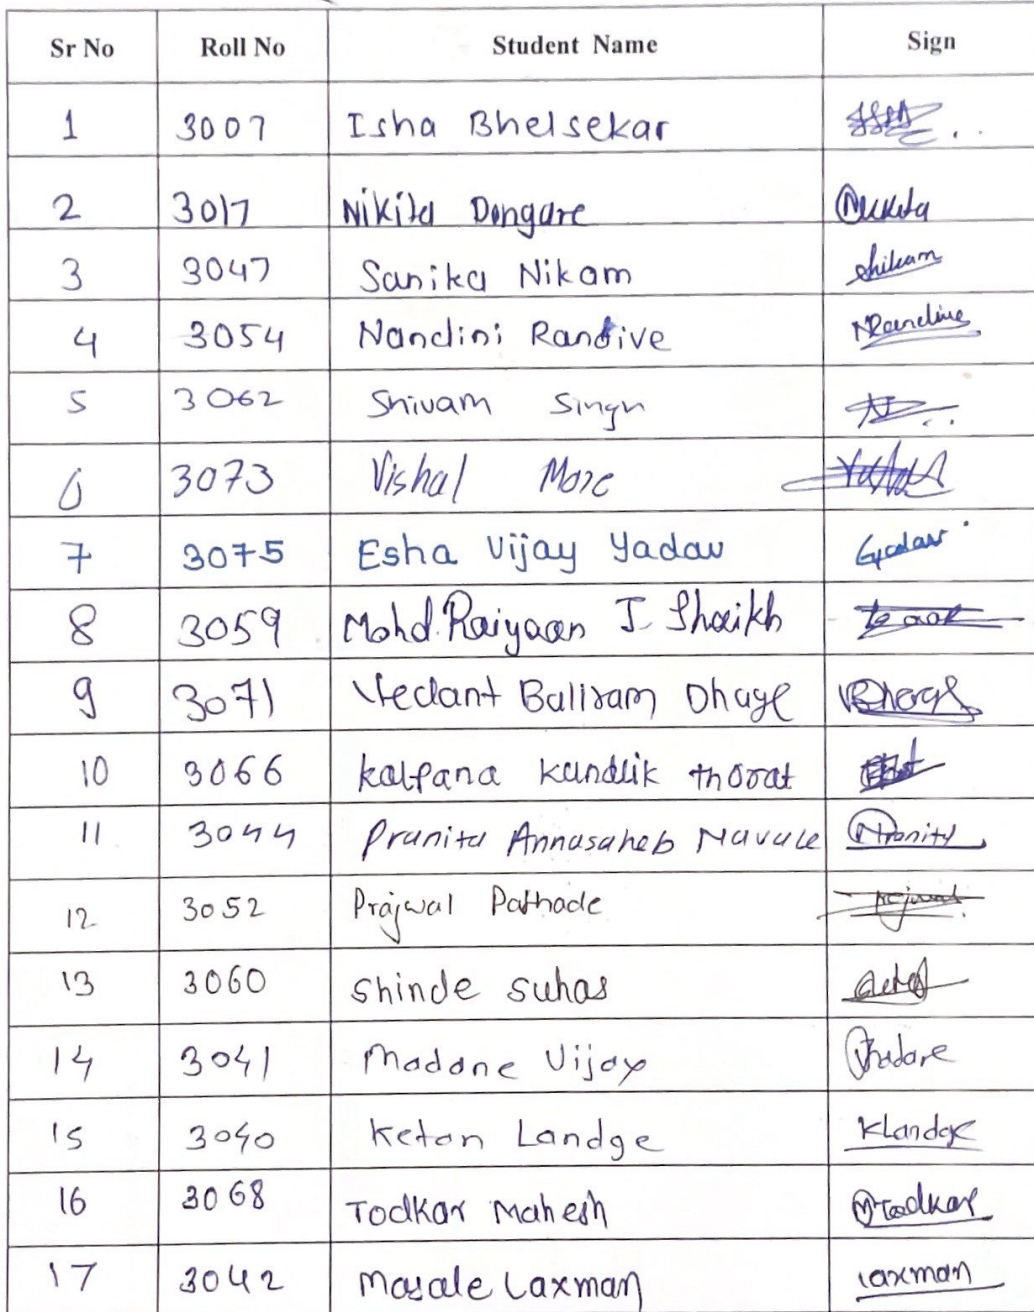 Sr No Roll No Student Name Sign
1 3007 Isha Bhelsekar
2 3017 Nikita Dongare Nikita
3 3047 Sanika Nikam SNikam
4 3054 Nandini Randive NRandive
5 3062 Shivam Singh
6 3073 Vishal More
7 3075 Esha Vijay Yadav EYadav
8 3059 Mohd.Raiyaan J. Shaikh
9 3071 Vedant Baliram Dhage
10 3066 kalpana kundlik thorat
11 3044 Pranita Annasaheb Navale Pranita
12 3052 Prajwal Pathode
13 3060 shinde suhas
14 3041 Madane Vijay
15 3040 Ketan Landge KLandge
16 3068 Todkar Mahesh MTodkar
17 3042 Masale Laxman Laxman